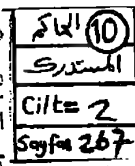 الحاكم 10
المستدرك
Cilt= 2
Sayfa 267